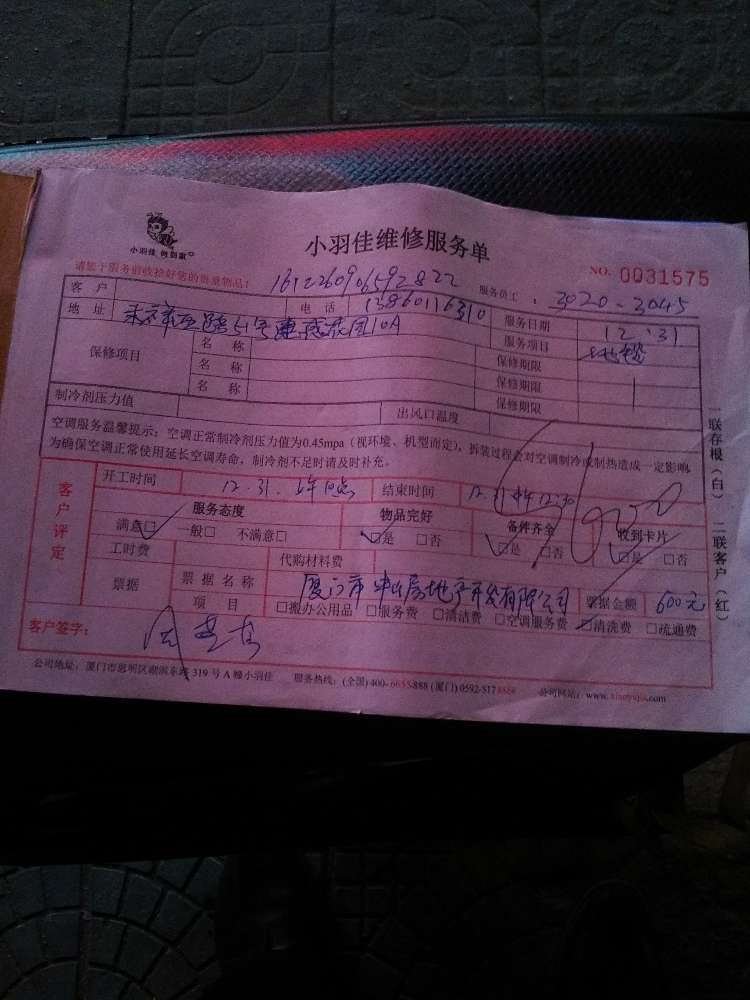 小羽佳 到家
小羽佳维修服务单
NO. 0031575
请您于服务前收捡好您的贵重物品!
1612260906592822
服务员工: 3020-3045
客户 电话 13860116310 服务日期 12.31
地址 51号 花园10A 服务项目 地毯
保修项目 名称 保修期限
名称 保修期限
名称 保修期限
制冷剂压力值 出风口温度
空调服务温馨提示:空调正常制冷剂压力值为0.45mpa(视环境、机型而定),拆装过程会对空调制冷或制热造成一定影响
为确保空调正常使用延长空调寿命,制冷剂不足时请及时补充。
客户评定
开工时间 12.31. 上午10点 结束时间 12.31 中午12:30
服务态度 物品完好 备件齐全 收到卡片
满意□ 一般□ 不满意□ □是 □否 □是 □否 □是 □否
工时费 代购材料费
票据 票据名称 厦门市 房地产开发有限公司 票据金额 600元
项目 □搬办公用品 □服务费 □清洁费 □空调服务费 □清洗费 □疏通费
客户签字:
公司地址:厦门市思明区湖滨东路319号A幢小羽佳 服务热线:(全国)400-6655-888 (厦门)0592-5178888 公司网站:www.xiaoyujia.com
一联存根(白) 二联客户(红)